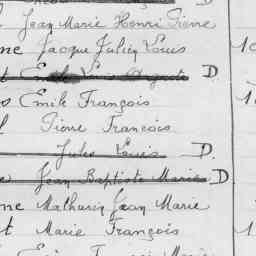 Jean Marie Henri Pierre
ne Jacque Julien Louis 10
t Emile Louis August D.
s Emile François
l Pierre François
Jules Louis D.
e Jean Baptiste Marie D.
ne Mathurin Jean Marie
t Marie François 1